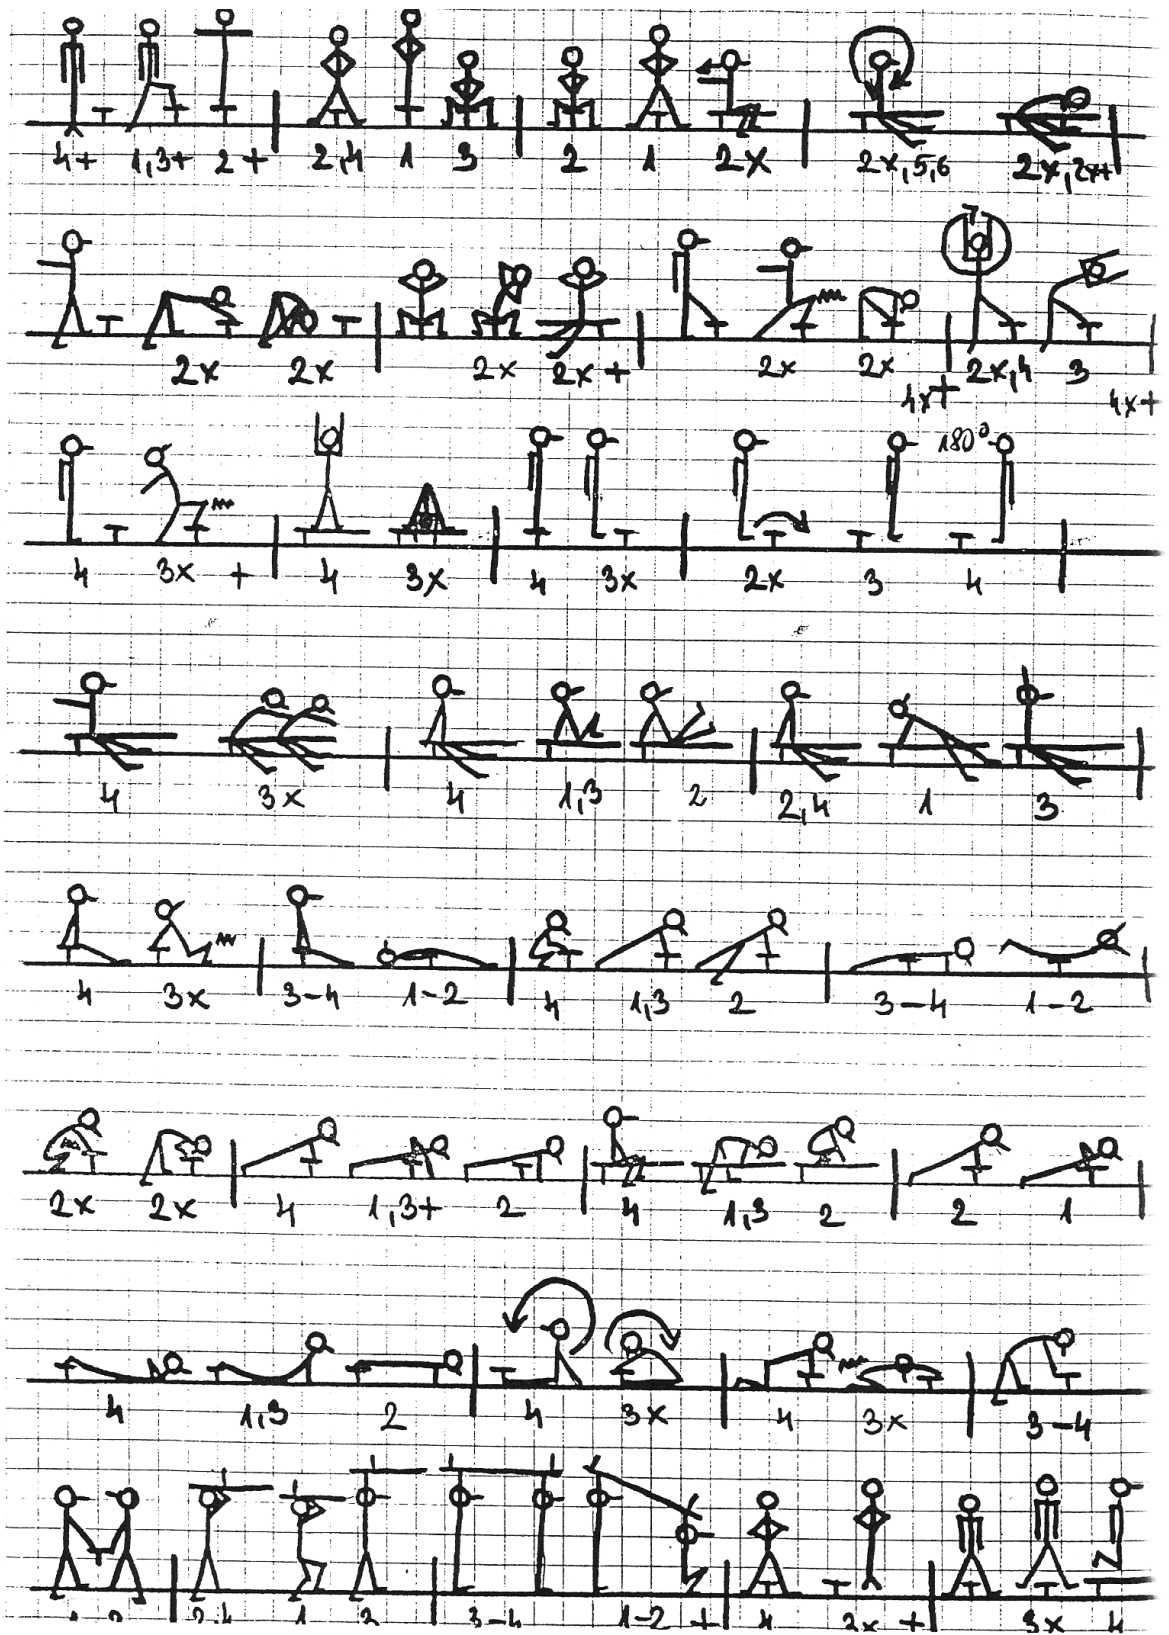 4+ 1,3+ 2+ 2,4 1 3 2 1 2x 2x,5,6 2x,2x+
2x 2x 2x 2x+ 2x 2x 4x+ 2x,4 3 4x+
180°
4 3x + 4 3x 4 3x 2x 3 4
4 3x 4 1,3 2 2,4 1 3
4 3x 3-4 1-2 4 1,3 2 3-4 1-2
2x 2x 4 1,3+ 2 4 1,3 2 2 1
4 1,3 2 4 3x 4 3x 3-4
1-2 2,4 1 2 3-4 1-2 + 4 2x + 3x 4